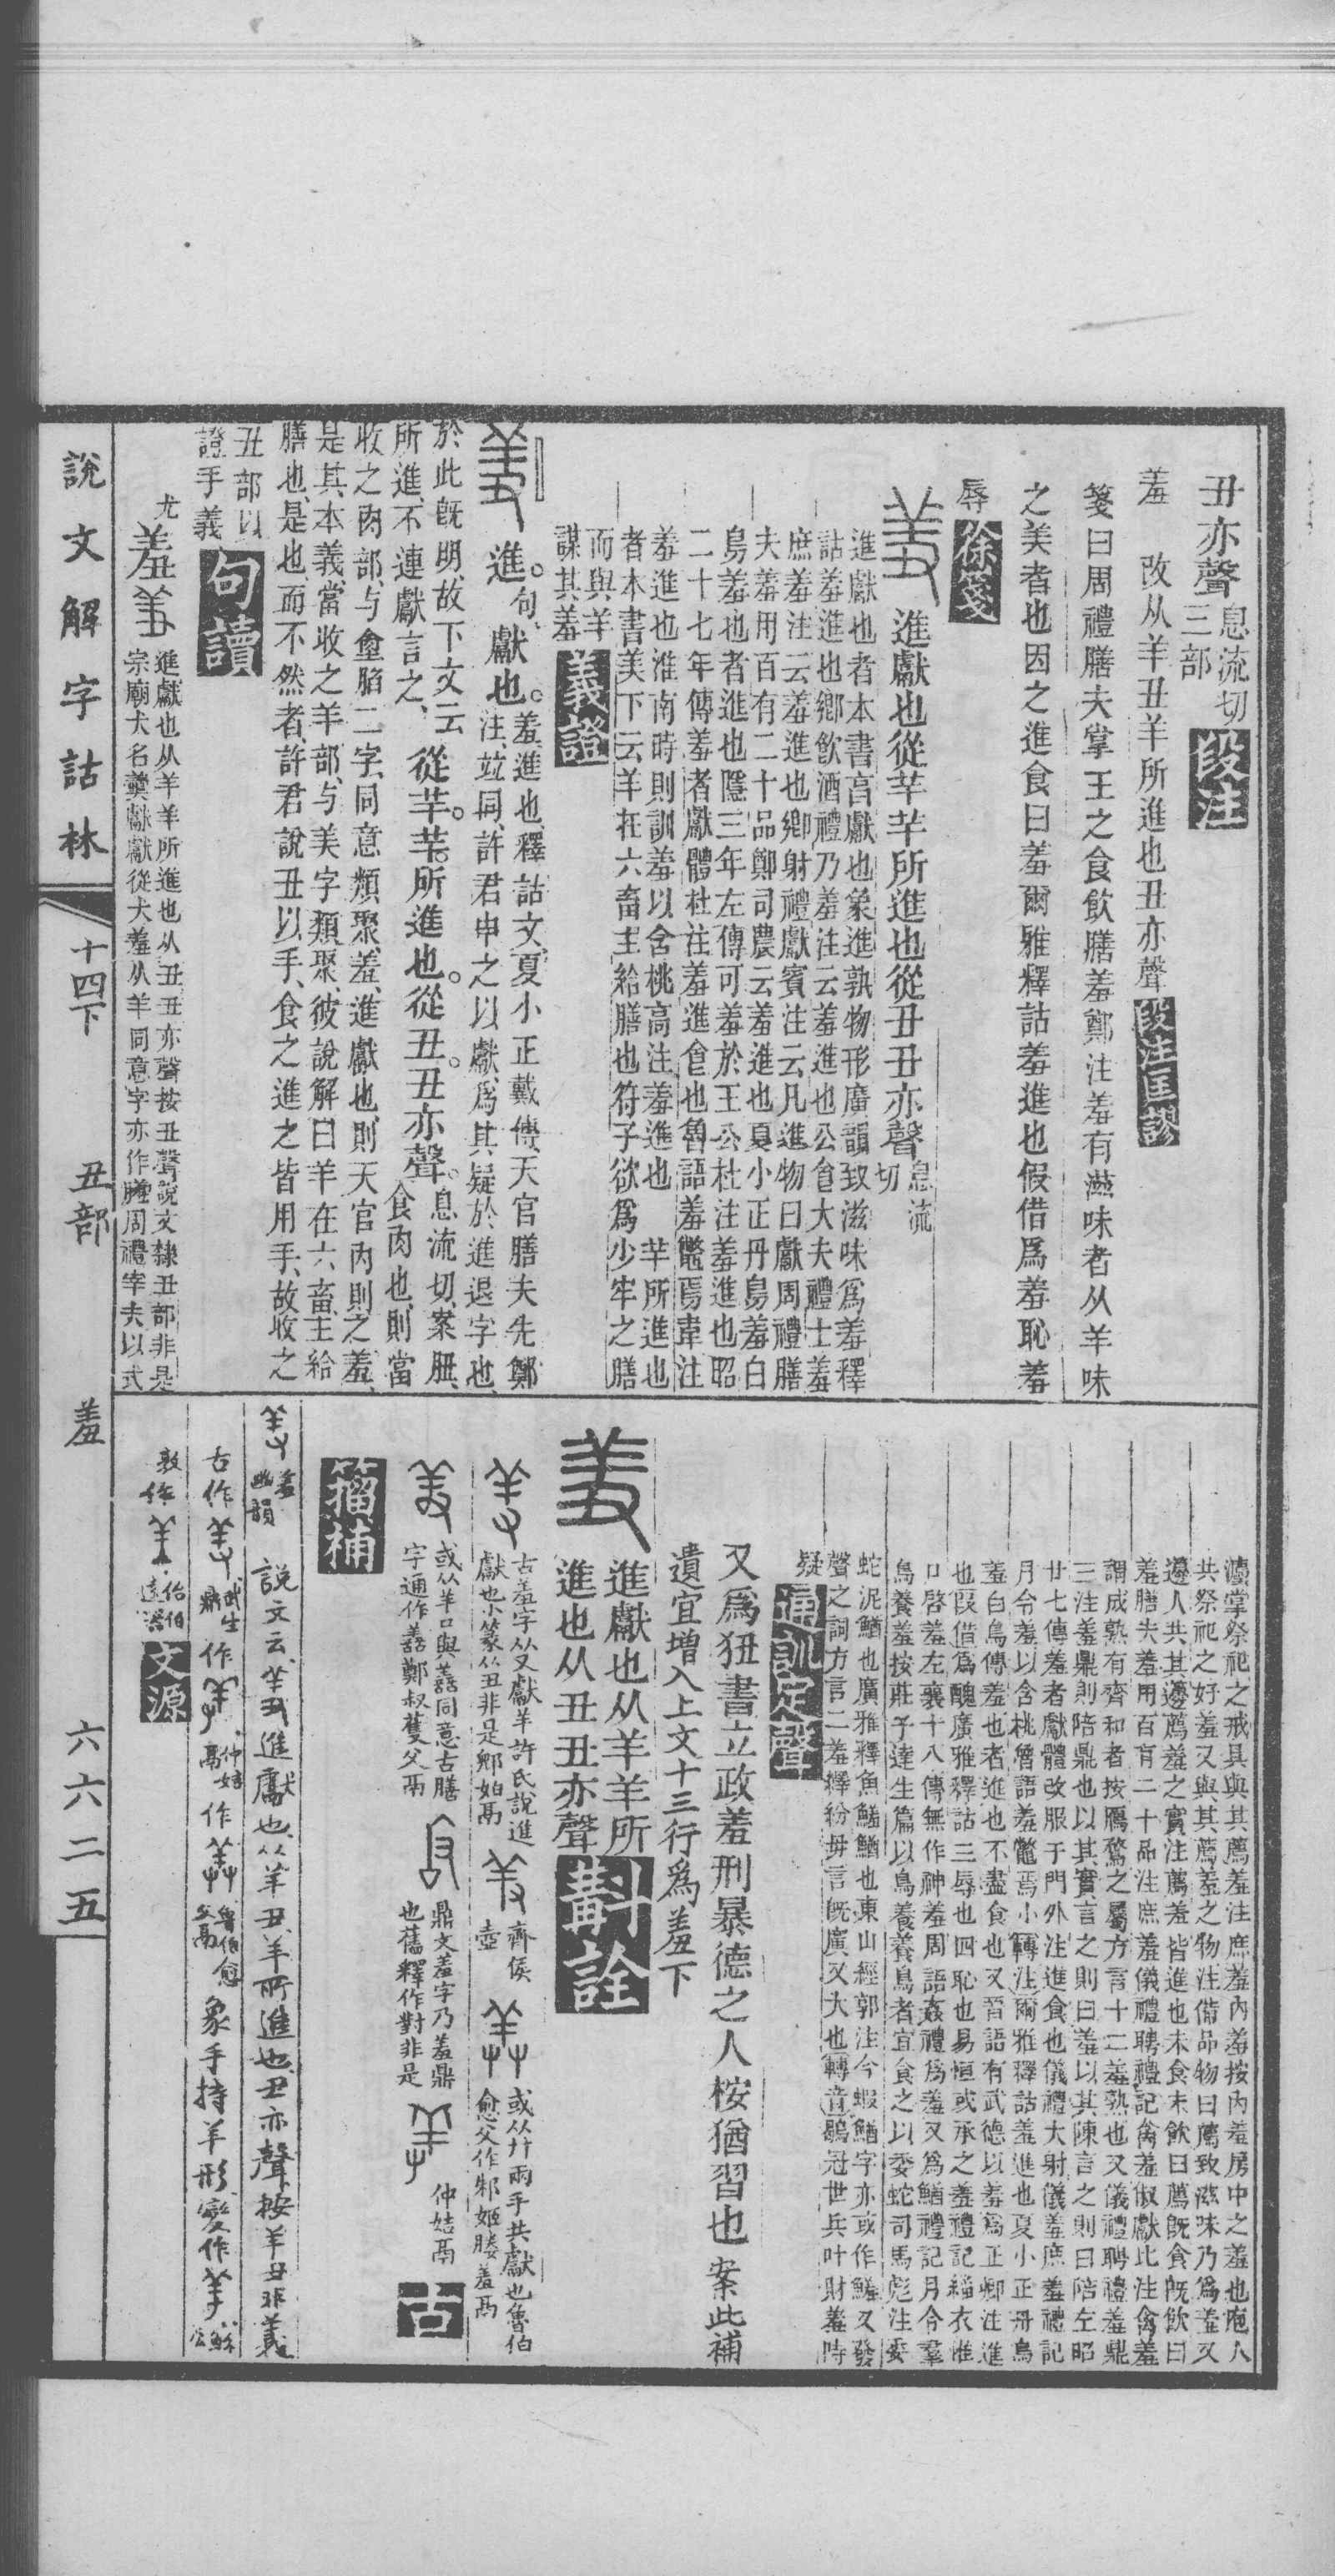 丑亦聲息流切三部段注
羞　改从羊丑羊所進也丑亦聲段注匡謬
箋曰周禮膳夫掌王之食飲膳羞鄭注羞有滋味者从羊味
之美者也因之進食曰羞爾雅釋詁羞進也假借爲羞恥羞
辱徐箋
進獻也從芉芉所進也從丑丑亦聲息流切
進獻也者本書亯獻也象進孰物形廣韻致滋味爲羞釋
詁羞進也鄉飲酒禮乃羞注云羞進也公食大夫禮士羞
庶羞注云羞進也鄉射禮獻賓注云凡進物曰獻周禮膳
夫羞用百有二十品鄭司農云羞進也夏小正丹鳥羞白
鳥羞也者進也隱三年左傳可羞於王公杜注羞進也昭
二十七年傳羞者獻體杜注羞進食也魯語羞鼈焉韋注
羞進也淮南時則訓羞以含桃高注羞進也　芉所進也
者本書美下云羊在六畜主給膳也符子欲爲少牢之膳
而與羊
謀其羞義證
進句獻也羞進也釋詁文夏小正戴傳天官膳夫先鄭
注竝同許君申之以獻爲其疑於進退字也
於此旣明故下文云從芉芉所進也從丑丑亦聲息流切案
所進不連獻言之食肉也則當
收之肉部与䏰二字同意類聚羞進獻也則天官內則之羞
是其本義當收之羊部与美字類聚彼說解曰羊在六畜主給
膳也是也而不然者許君說丑以手食之進之皆用手故收之
丑部以
證手義句讀
尤羞進獻也从羊羊所進也从丑丑亦聲按丑聲說文隸丑部非是
宗廟犬名羹獻獻從犬羞从羊同意字亦作膳周禮宰夫以式
說文解字詁林　十四下　丑部　羞　六六二五
灋掌祭祀之戒具與其薦羞注庶羞內羞按內羞房中之羞也庖人
共祭祀之好羞又與其薦羞之物注備品物曰薦致滋味乃爲羞又
籩人共其籩薦羞之實注薦羞皆進也未食未飲曰薦旣食旣飲曰
羞膳夫羞用百有二十品注庶羞儀禮聘禮記禽羞俶獻比注禽羞
謂成熟有齊和者按鴈鶩之屬方言十二羞熟也又儀禮聘禮羞鼎
三注羞鼎則陪鼎也以其實言之則曰羞以其陳言之則曰陪左昭
廿七傳羞者獻體改服于門外注進食也儀禮大射儀羞庶羞禮記
月令羞以含桃魯語羞鼈焉小轉注爾雅釋詁羞進也夏小正丹鳥
羞白鳥傳羞也者進也不盡食也又晉語有武德以羞爲正卿注進
也叚借爲醜廣雅釋詁三辱也四恥也易恒或承之羞禮記緇衣惟
口啓羞左襄十八傳無作神羞周語姦禮爲羞又爲鰌禮記月令羣
鳥養羞按莊子達生篇以鳥養養鳥者宜食之以委蛇司馬彪注委
蛇泥鰌也廣雅釋魚鱃鰌也東山經郭注今蝦鰌字亦或作鱃又發
聲之詞方言二羞繹紛毋言旣廣又大也轉音鶡冠世兵叶財羞時
疑通訓定聲
又爲狃書立政羞刑暴德之人桉猶習也　案此補
遺宜增入上文十三行爲羞下
進獻也从羊羊所
進也从丑丑亦聲斠詮
古羞字从又獻羊許氏說進獻也小篆从丑非是鄭姞鬲　齊侯壺　或从廾兩手共獻也魯伯愈父作邾姬媵羞鬲
或从羊口與譱同意古膳字通作譱鄭叔蒦父鬲　鼎文羞字乃羞鼎也舊釋作對非是　仲姞鬲　古
籀補
羞幽韻　說文云進獻也从羊丑羊所進也丑亦聲按羊丑非義
古作武生鼎作仲姞鬲作魯伯愈父鬲象手持羊形變作穌公
敦作伯逹文源